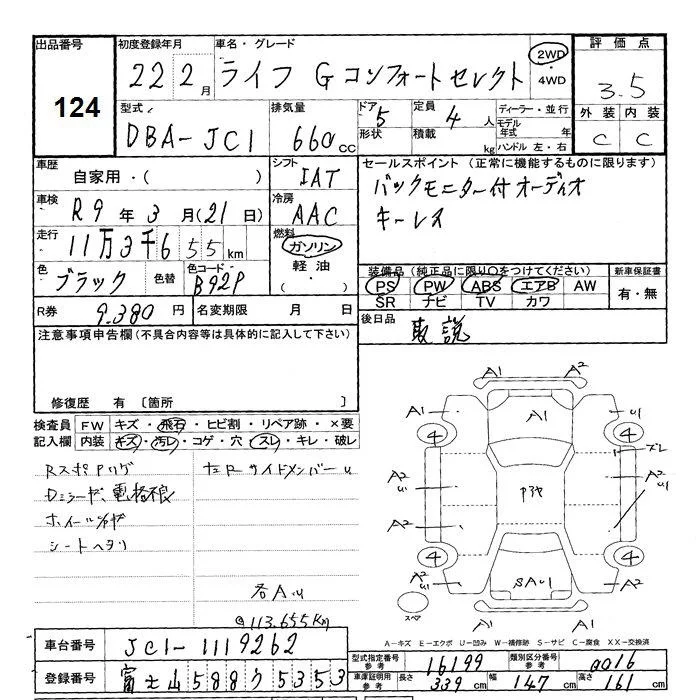 出品番号 初度登録年月 車名・グレード 評価点
124
22 2月 ライフ G コンフォートセレクト 2WD・4WD 3.5
外装 内装
C C
型式 排気量 ドア 定員 ディーラー・並行
DBA-JC1 660cc 5 4人 モデル年式 年
形状 積載 kg ハンドル 左・右
車歴 シフト セールスポイント (正常に機能するものに限ります)
自家用・( ) IAT バックモニター付オーディオ
車検 R9年3月(21日) 冷房 AAC キーレス
走行 11万3千655km 燃料 ガソリン
軽油・( )
色 ブラック 色替 色コード B92P
装備品(純正品に限り○をつけてください) 新車保証書
PS PW ABS エアB AW 有・無
SR ナビ TV カワ
R券 9.380円 名変期限 月 日
後日品 取説
注意事項申告欄(不具合内容等は具体的に記入して下さい)
修復歴 有 〔箇所 〕
検査員記入欄 FW キズ・飛石・ヒビ割・リペア跡・×要
内装 キズ・汚レ・コゲ・穴・スレ・キレ・破レ
ホイールガサ
シートヘタリ
各AU
@113.655Km
A1 A2
A1 A1 U1
4 4
ズレ
A2 U1 A2 U1
A2 A1
4 4
A2 SAU1 A2
スペア
A-キズ E-エクボ U-凹み W-補修跡 S-サビ C-腐食 XX-交換済
車台番号 JC1-1119262
登録番号 富士山588ワ5353
型式指定番号 参考 16199 類別区分番号 参考 0016
車庫証明用 参考 長さ 339cm 幅 147cm 高さ 161cm